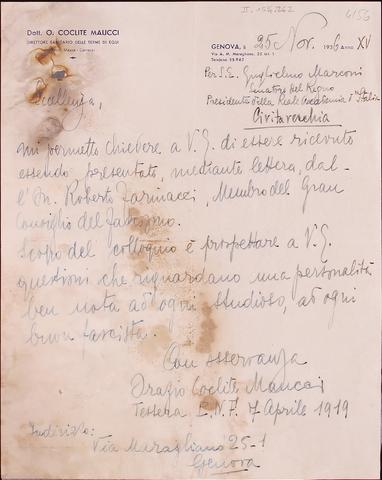 II. 156.262
6156
Dott. O. COCLITE MALICCI
DIRETTORE SANITARIO DELLE TERME DI EQUI
GENOVA, li 25 Nov. 1936 Anno XV
Via A. M. Maragliano, 25 int. 1
Telefono 55-962
Per S.E. Guglielmo Marconi
Senatore del Regno
Presidente della Reale Accademia d'Italia
Civitavecchia
Eccellenza,
mi permetto chiedere a V.E. di essere ricevuto
essendo presentato, mediante lettera, dal-
l'On. Roberto Farinacci, Membro del Gran
Consiglio del Fascismo.
Scopo del colloquio è prospettare a V.E.
questioni che riguardano una personalità
ben nota ad ogni studioso, ad ogni
buon fascista.
Con osservanza
Orazio Coclite
Tessera P.N.F. 7 Aprile 1919
Indirizzo:
Via Maragliano 25-1
Genova